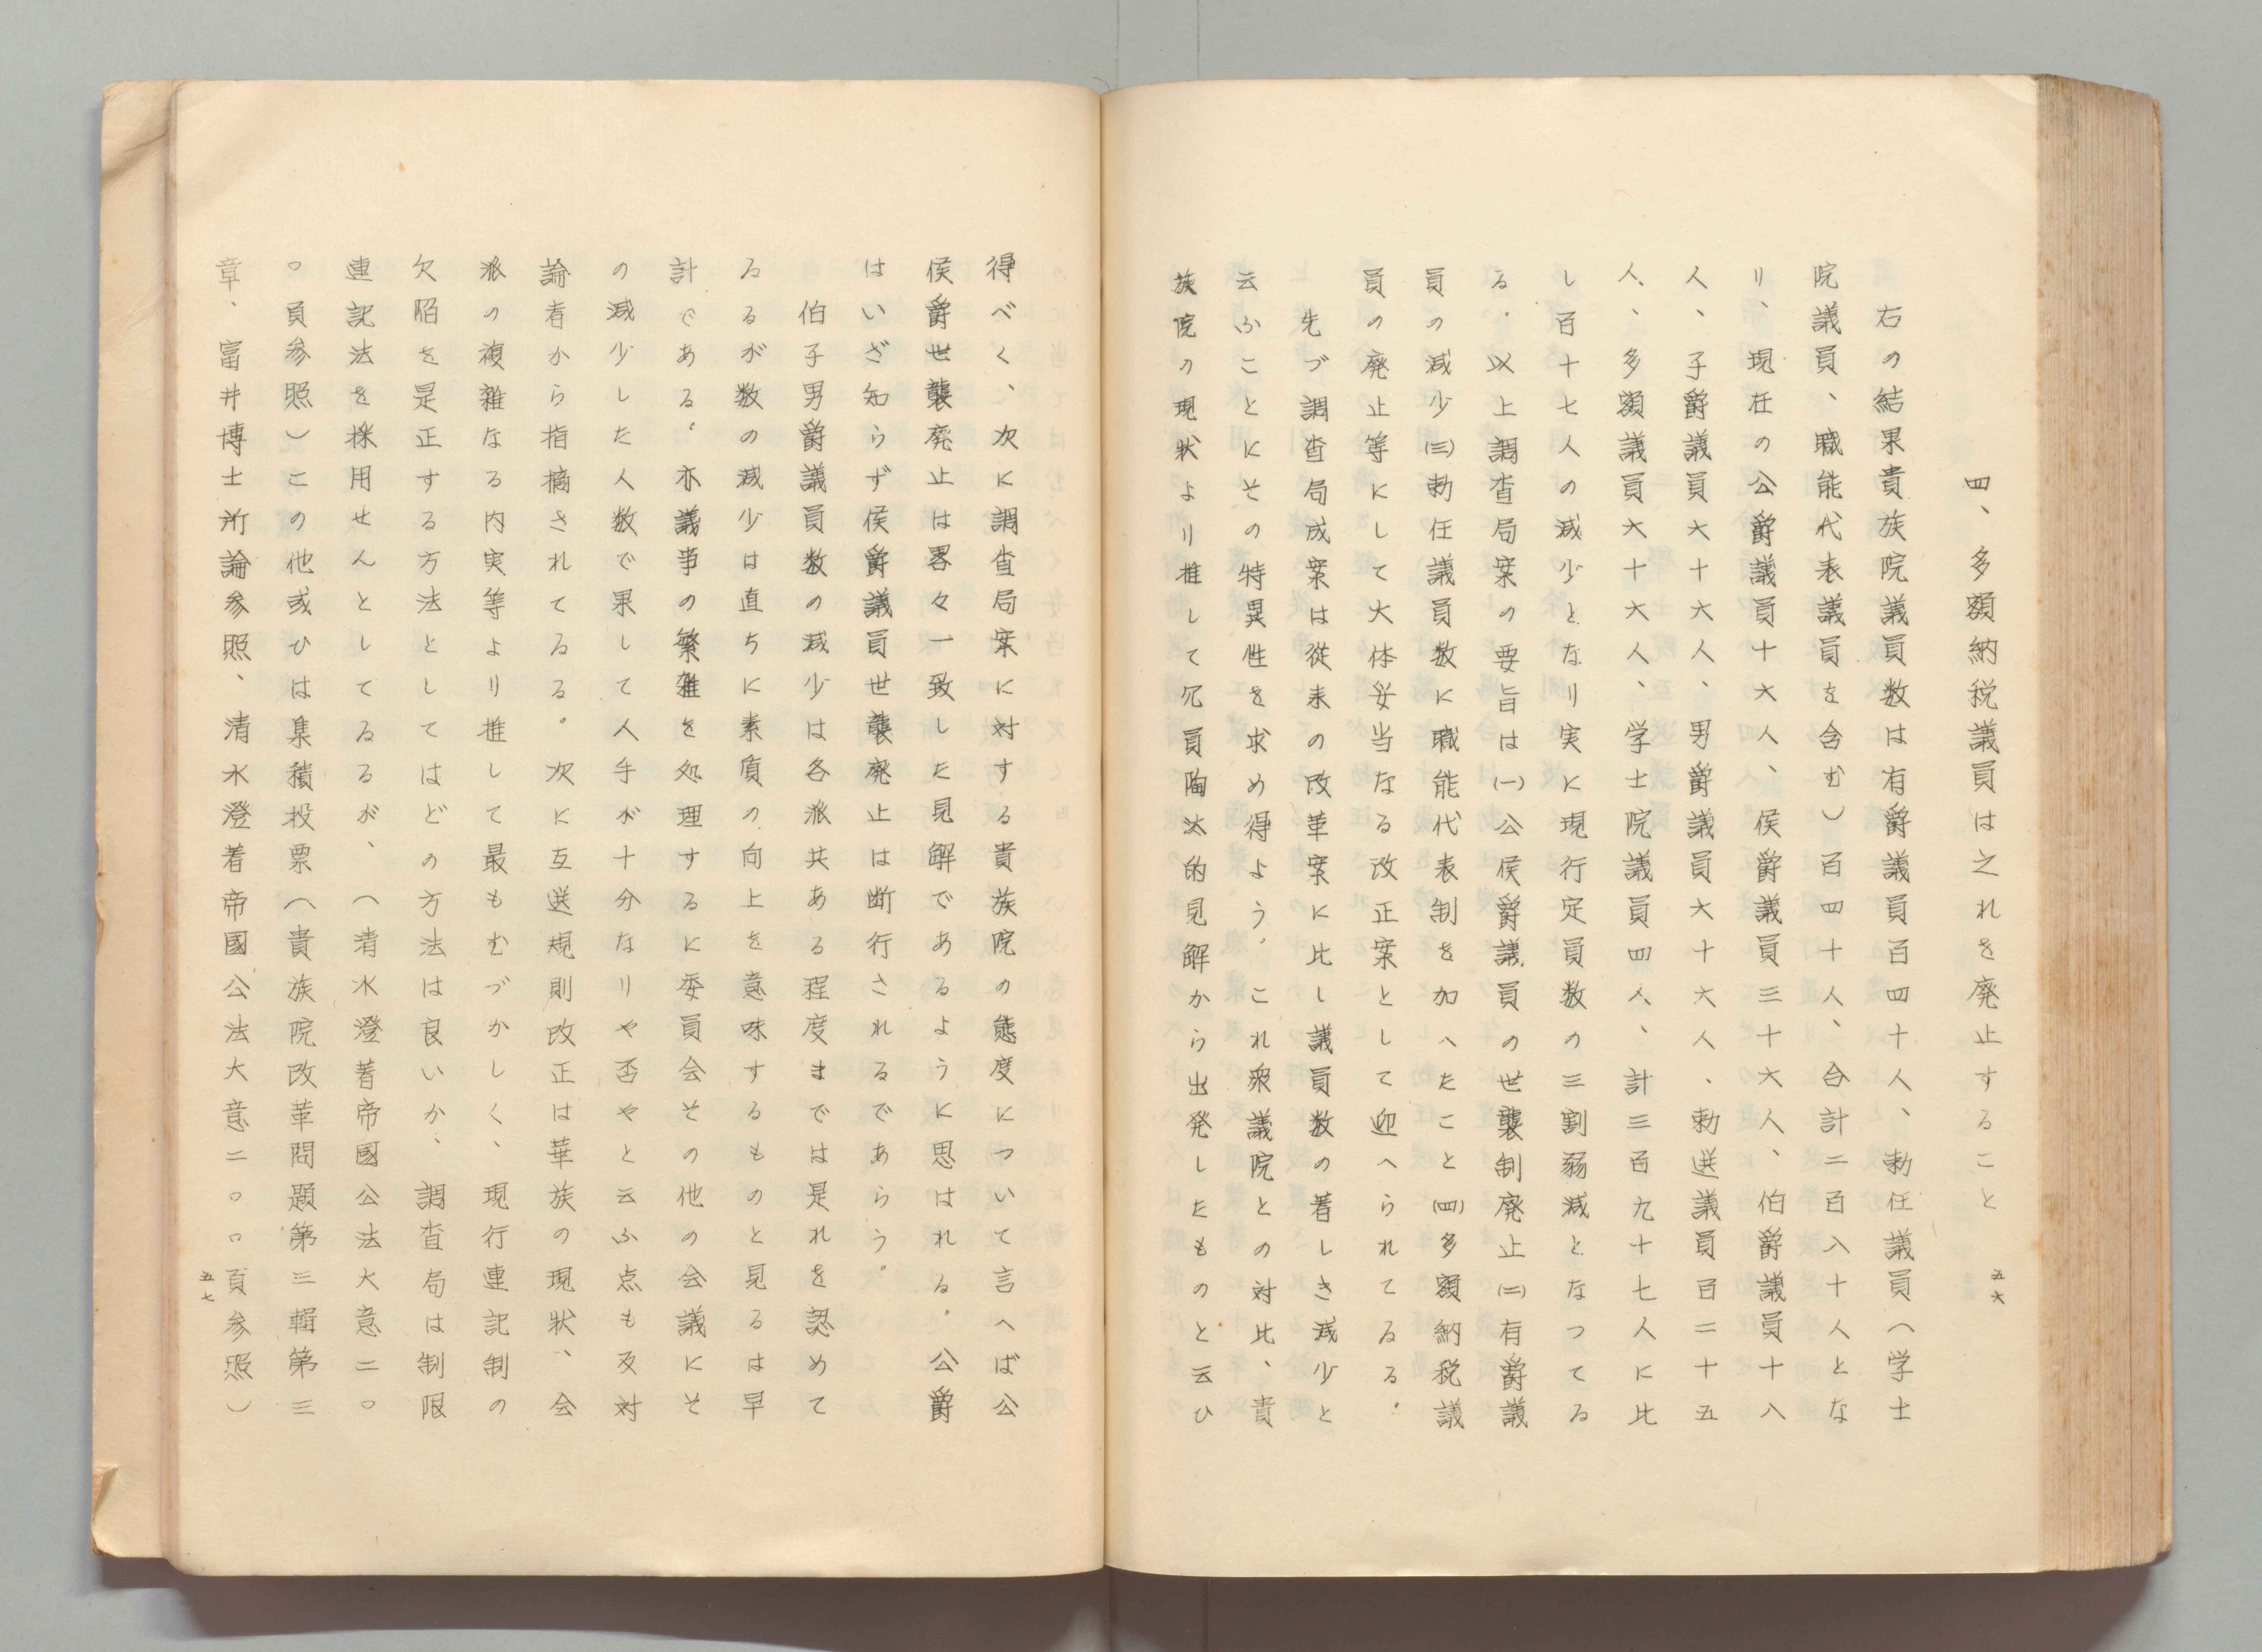 四、多額納税議員は之れを廃止すること
右の結果貴族院議員数は有爵議員百四十人、勅任議員（学士
院議員、職能代表議員を含む）百四十人、合計二百八十人とな
り、現在の公爵議員十六人、侯爵議員三十六人、伯爵議員十八
人、子爵議員六十六人、男爵議員六十六人、勅選議員百二十五
人、多額議員六十六人、学士院議員四人、計三百九十七人に比
し百十七人の減少となり実に現行定員数の三割弱減となつてゐ
る。以上調査局案の要旨は㈠公侯爵議員の世襲制廃止㈡有爵議
員の減少㈢勅任議員数に職能代表制を加へたこと㈣多額納税議
員の廃止等にして大体妥当なる改正案として迎へられてゐる。
先づ調査局成案は従来の改革案に比し議員数の著しき減少と
云ふことにその特異性を求め得よう。これ衆議院との対比、貴
族院の現状より推して冗員陶汰的見解から出発したものと云ひ
五六
得べく、次に調査局案に対する貴族院の態度について言へば公
侯爵世襲廃止は畧々一致した見解であるように思はれる。公爵
はいざ知らず侯爵議員世襲廃止は断行されるであらう。
伯子男爵議員数の減少は各派共ある程度までは是れを認めて
ゐるが数の減少は直ちに素質の向上を意味するものと見るは早
計である。亦議事の繁雑を処理するに委員会その他の会議にそ
の減少した人数で果して人手が十分なりや否やと云ふ点も反対
論者から指摘されてゐる。次に互選規則改正は華族の現状、会
派の複雑なる内実等より推して最もむづかしく、現行連記制の
欠陥を是正する方法としてはどの方法は良いか、調査局は制限
連記法を採用せんとしてゐるが、（清水澄著帝國公法大意二〇
〇頁参照）この他或ひは集積投票（貴族院改革問題第三輯第三
章、富井博士所論参照、清水澄著帝國公法大意二〇〇頁参照）
五七